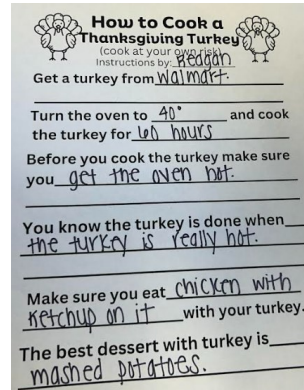 How to Cook a
Thanksgiving Turkey
(cook at your own risk)
Instructions by: Reagan
Get a turkey from Walmart.
Turn the oven to 40° and cook
the turkey for 60 hours
Before you cook the turkey make sure
you get the oven hot.
You know the turkey is done when
the turkey is really hot.
Make sure you eat chicken with
ketchup on it with your turkey.
The best dessert with turkey is
mashed potatoes.